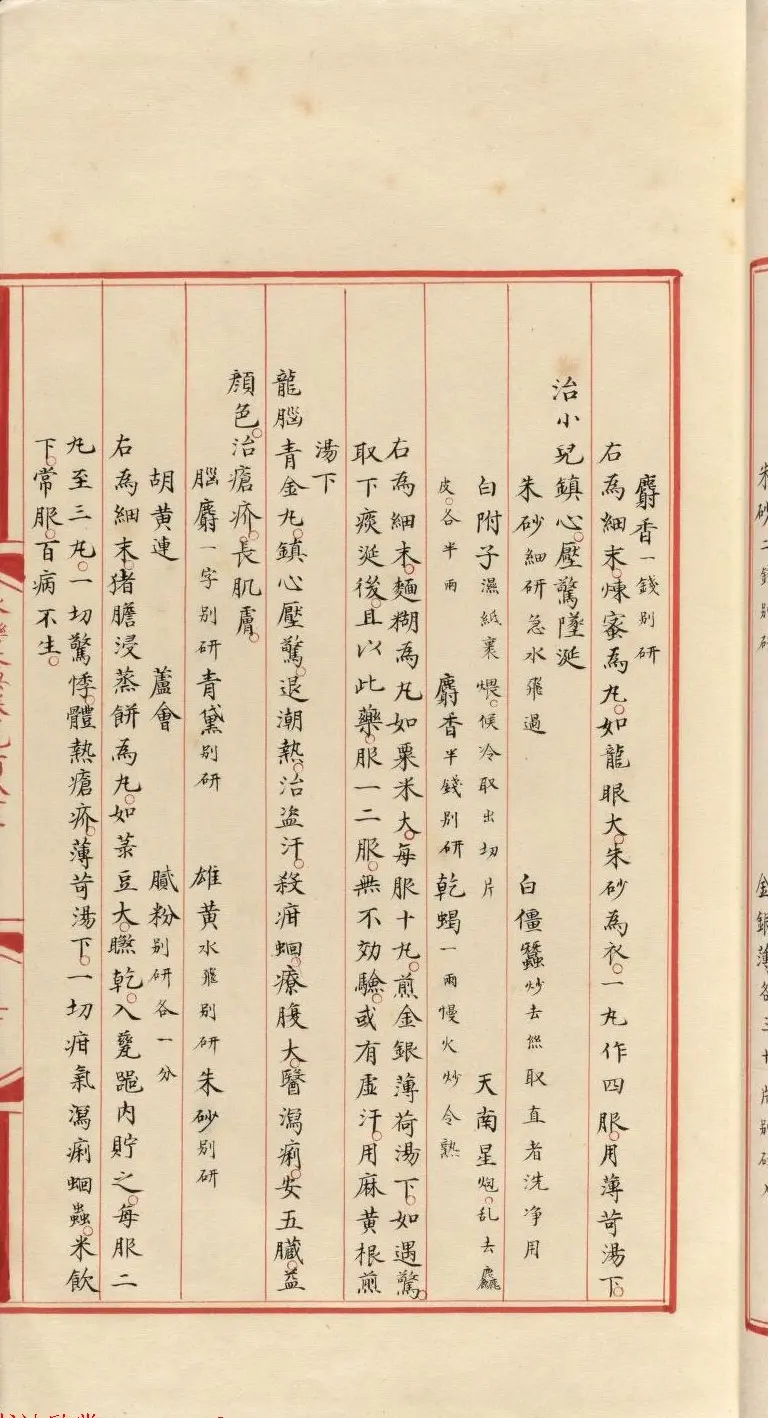 麝香一錢别研
右為細末。煉蜜為丸。如龍眼大。朱砂為衣。一丸作四服。用薄苛湯下。
治小兒鎮心。壓驚墜涎
朱砂細研急水飛過 白僵蠶炒去絲取直者洗净用
白附子濕紙裹煨。候冷取出切片 天南星炮。乱去麄
皮。各半兩 麝香半錢别研 乾蝎一兩慢火炒令熟
右為細末。麵糊為丸如粟米大。每服十丸。煎金銀薄荷湯下。如遇驚。
取下痰涎後。且以此藥。服一二服。無不効驗。或有虚汗。用麻黄根煎
湯下
龍腦青金丸。鎮心壓驚。退潮熱。治盗汗。殺疳蛔。療腹大。醫瀉痢。安五臟。益
顔色。治瘡疥。長肌膚。
腦麝一字别研 青黛别研 雄黄水飛别研 朱砂别研
胡黄連 蘆會 膩粉别研各一分
右為細末。猪膽浸蒸餅為丸。如菉豆大。㬠乾。入甆器内貯之。每服二
丸至三丸。一切驚悸。體熱瘡疥。薄苛湯下。一切疳氣瀉痢蛔蟲。米飲
下。常服。百病不生。